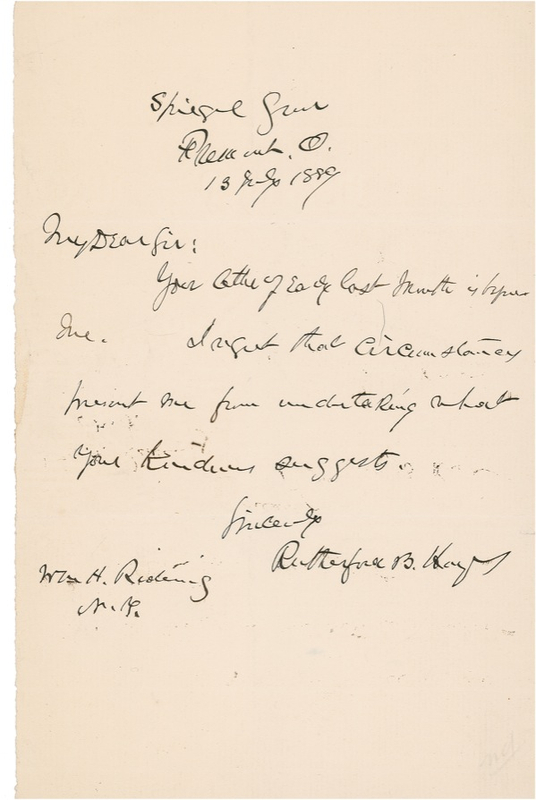 Spiegel Grove
Fremont. O.
13 July 1889
My Dear Sir:
Your letter of early last month is before
me. I regret that circumstances
prevent me from undertaking what
your kindness suggests.
Sincerely
Rutherford B. Hayes
Wm H. Rideing
N. Y.